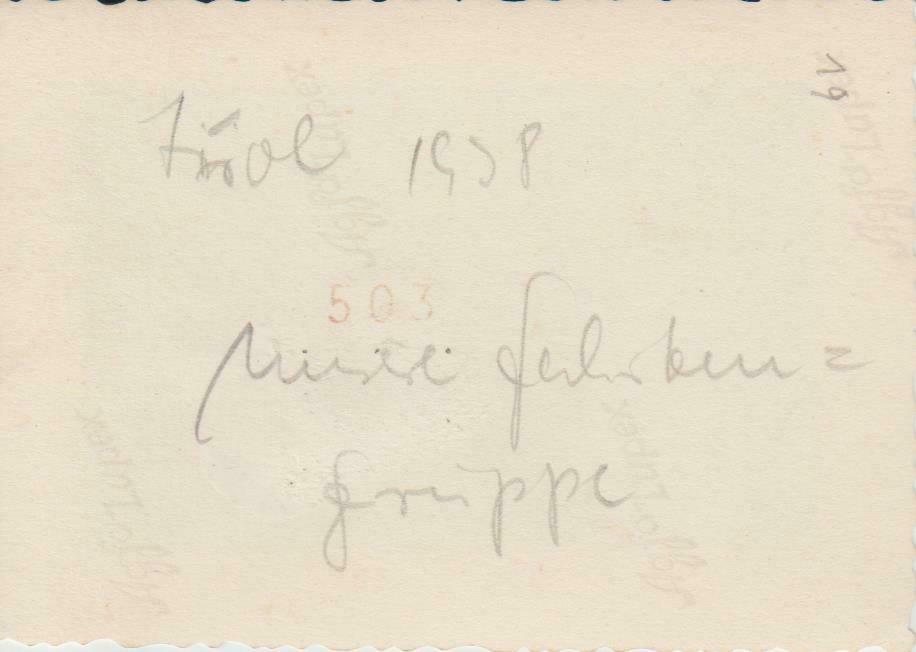 19
Tirol 1938
503
Unsere
gruppe
Agfa-Lupex
Agfa-Lupex
Agfa-Lupex
Agfa-Lupex